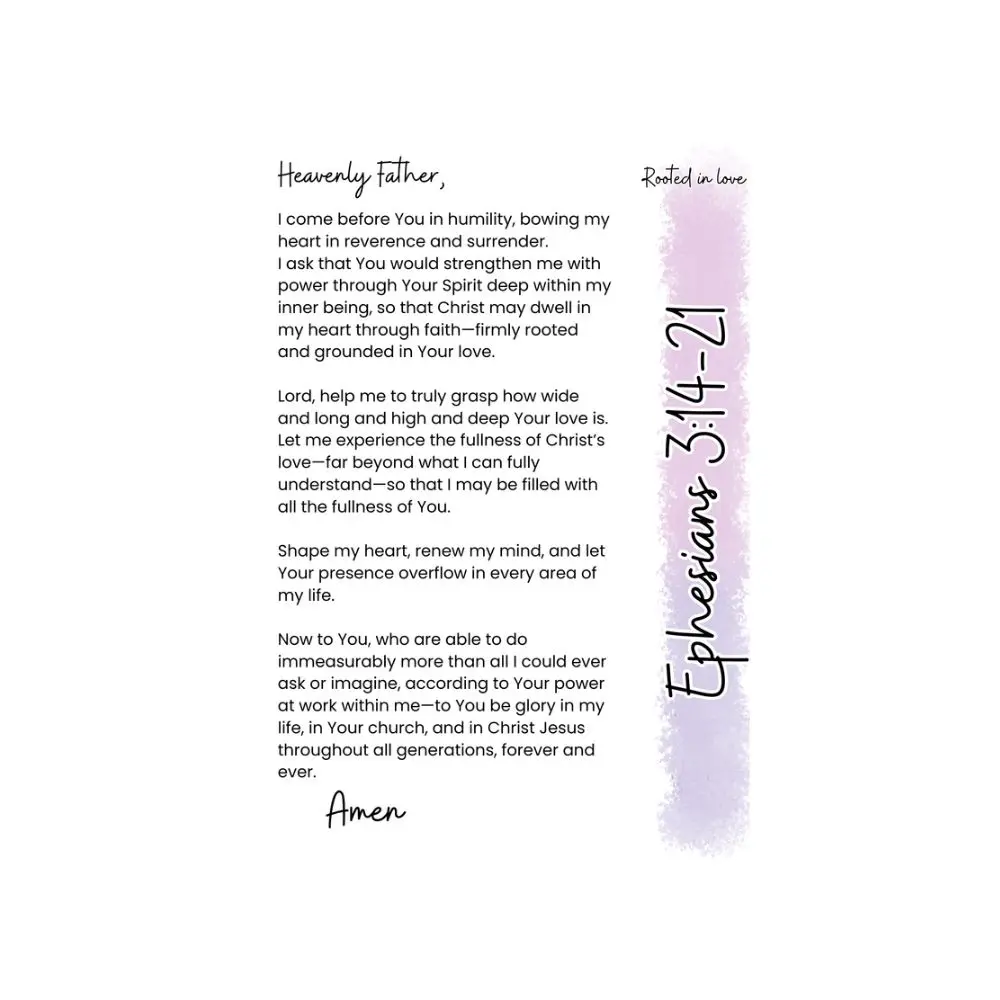 Heavenly Father,
I come before You in humility, bowing my
heart in reverence and surrender.
I ask that You would strengthen me with
power through Your Spirit deep within my
inner being, so that Christ may dwell in
my heart through faith—firmly rooted
and grounded in Your love.
Lord, help me to truly grasp how wide
and long and high and deep Your love is.
Let me experience the fullness of Christ's
love—far beyond what I can fully
understand—so that I may be filled with
all the fullness of You.
Shape my heart, renew my mind, and let
Your presence overflow in every area of
my life.
Now to You, who are able to do
immeasurably more than all I could ever
ask or imagine, according to Your power
at work within me—to You be glory in my
life, in Your church, and in Christ Jesus
throughout all generations, forever and
ever.
Amen
Rooted in love
Ephesians 3:14-21